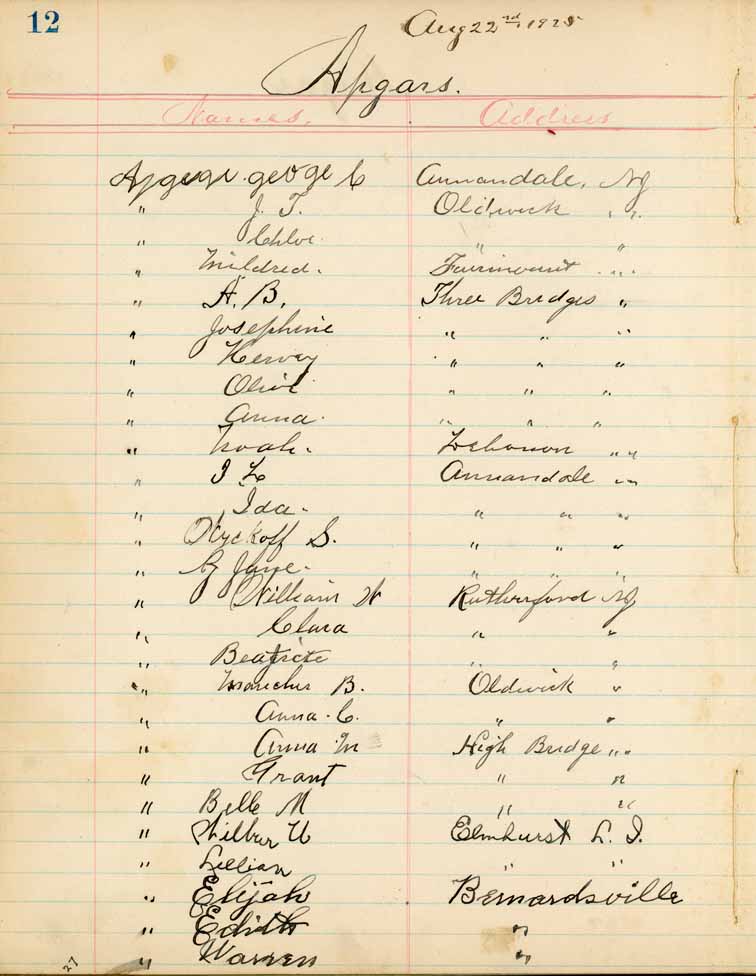 12
Aug 22nd 1925
Apgars.
Names. Address
george C Annandale, NJ
" J. T. Oldwick " "
" Chloe. " "
" Mildred. Fairmount " "
" A. B. Three Bridges "
" Josephine " " "
" Hervey " " "
" Olive " " "
" Anna. " " "
" Noah. Lebanon " "
" I L Annandale " "
" Ida. " " "
" Wyckoff S. " " "
" Jane. " " "
" William W Rutherford NJ
" Clara " "
" Beatrice " "
" B. Oldwick "
" Anna. C. " "
" Anna M High Bridge " "
" Grant " "
" Belle M " "
" Wilbur U Elmhurst L. I.
" Lillian " "
" Elijah Bernardsville
" Edith "
" Warren "
27